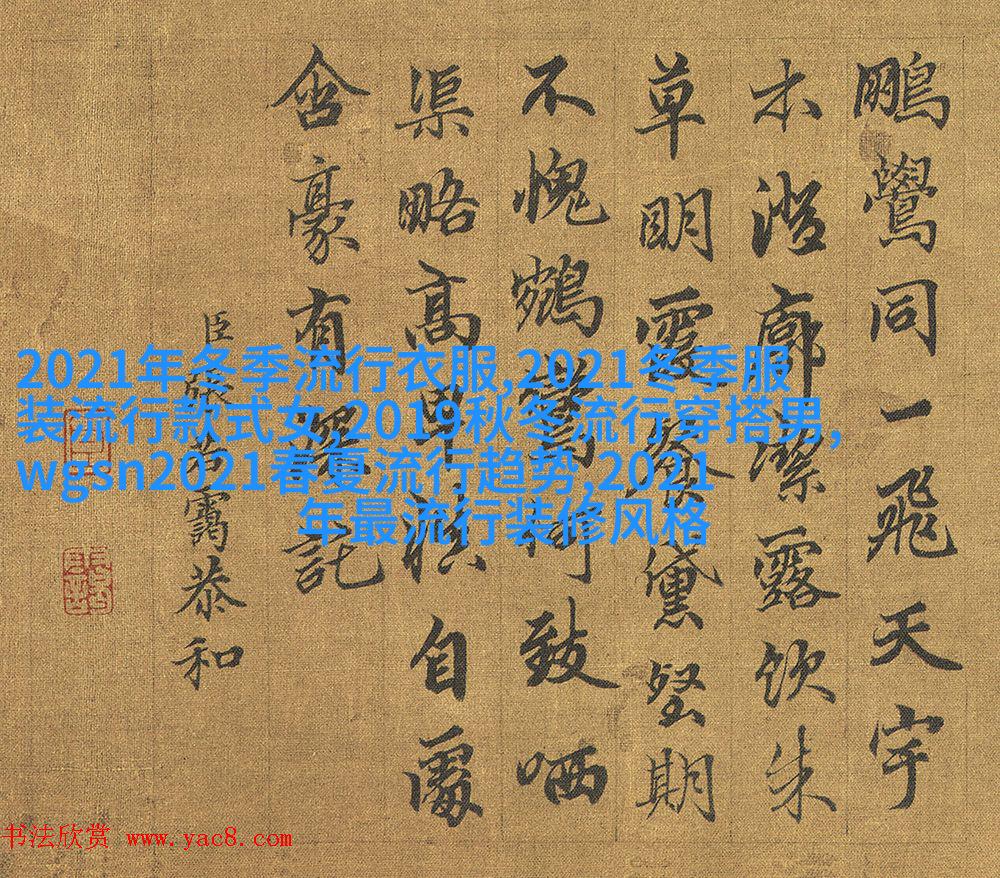 鵬鷽同一飛天宇
木澄廓潔露飲朱
草明霞發黛堅期
不愧鵷鸞何致哂
渠略高卑自
含豪有深託
臣張若靄恭和
2021年冬季流行衣服,2021冬季服
装流行款式女,2019秋冬流行穿搭男,
wgsn2021春夏流行趋势,2021
年最流行装修风格
书法欣赏 www.yac8.com